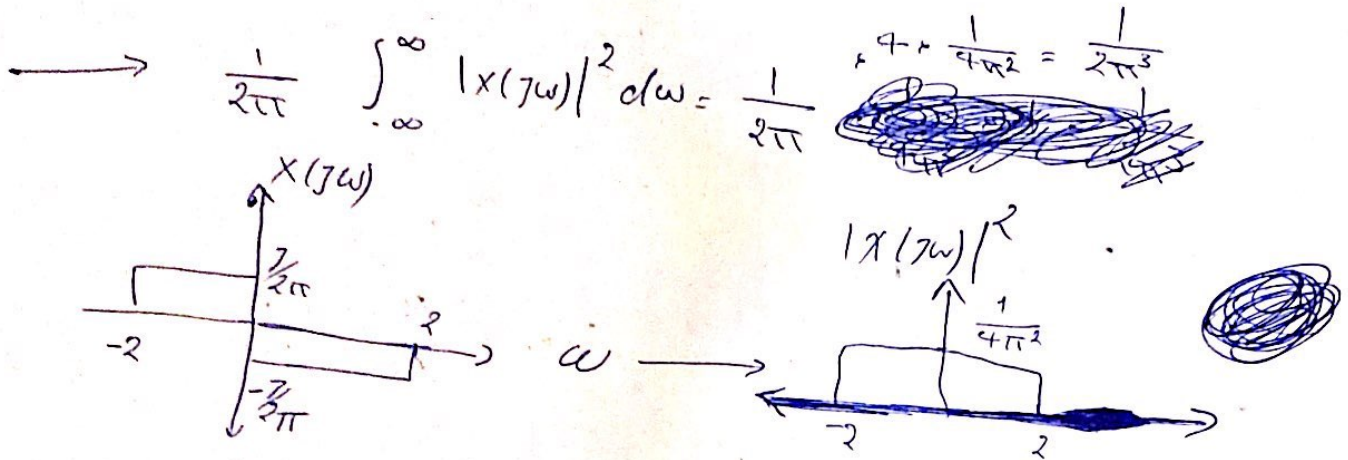 → 1/2π ∫_{-∞}^{∞} |X(jω)|² dω = 1/2π × 4 × 1/4π² = 1/2π³
X(jω)
j/2π
-2
2
-j/2π
ω →
|X(jω)|²
1/4π²
-2
2